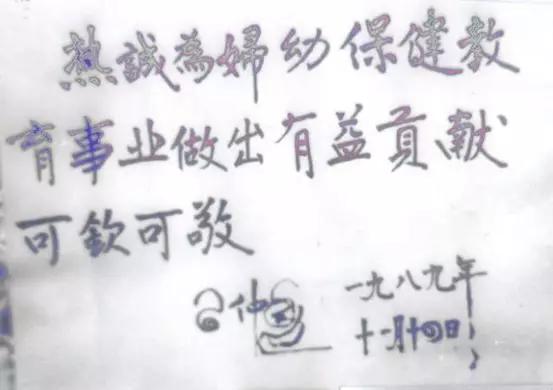 热誠為婦幼保健教
育事业做出有益貢献
可欽可敬
仲
一九八九年
十一月十四日